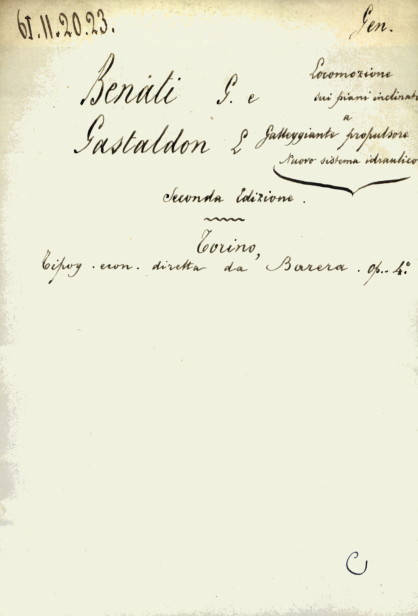 61.11.20.23.
Gen.
Benáti G. e
Gastaldon E
Locomozione
sui piani inclinati
a
Galleggiante propulsore
Nuovo sistema idraulico
Seconda Edizione.
Torino,
Tipog. econ. diretta da Barera. op. 4.º
C